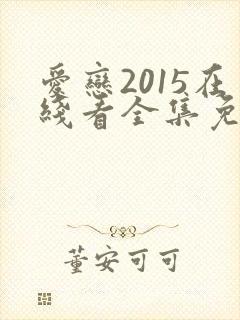 愛戀2015在
綫看全集免
董安可可